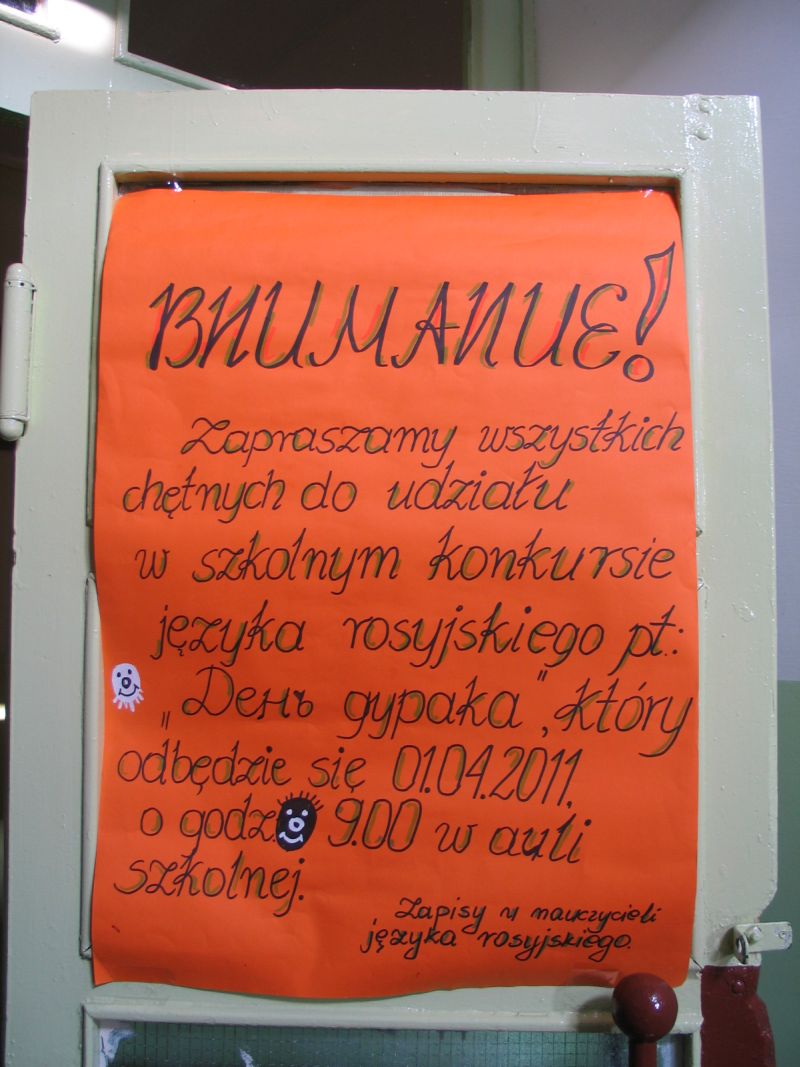 ВНИМАНИЕ!
Zapraszamy wszystkich
chętnych do udziału
w szkolnym konkursie
języka rosyjskiego pt.:
„День дурака", który
odbędzie się 01.04.2011,
o godz. 9.00 w auli
szkolnej.
Zapisy u nauczycieli
języka rosyjskiego.